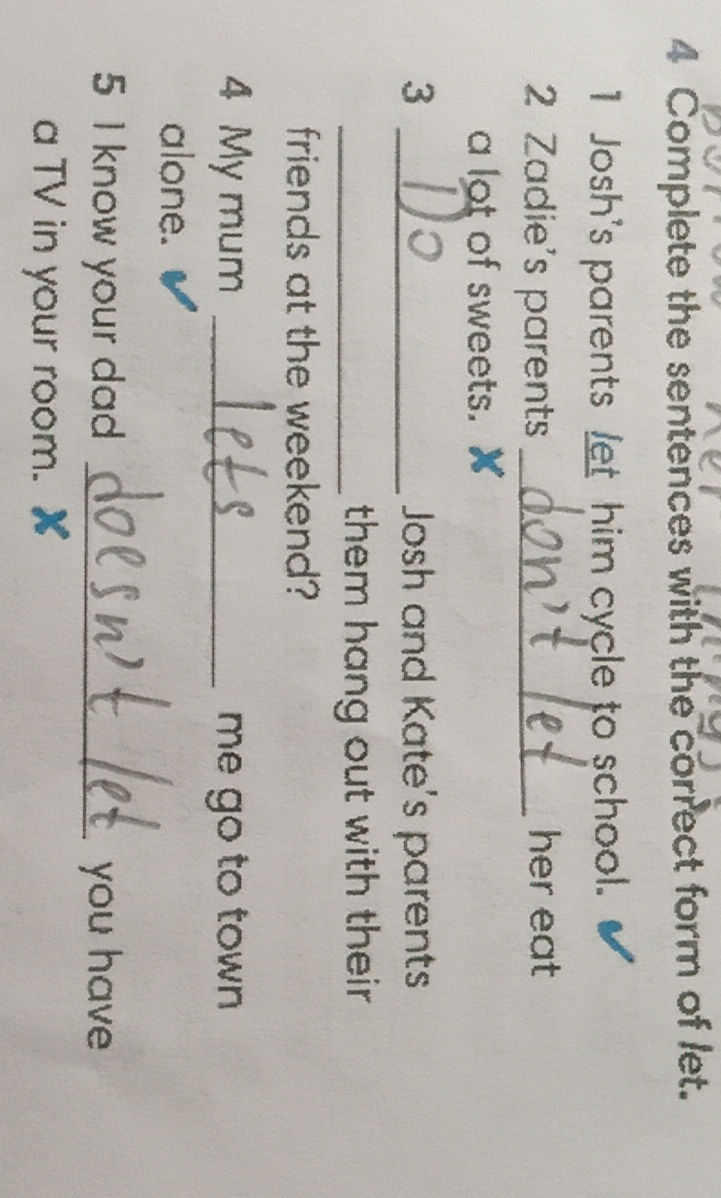 4 Complete the sentences with the correct form of let.
1 Josh's parents let him cycle to school. ✓
2 Zadie's parents don't let her eat
a lot of sweets. ✗
3 Do Josh and Kate's parents
them hang out with their
friends at the weekend?
4 My mum lets me go to town
alone. ✓
5 I know your dad doesn't let you have
a TV in your room. ✗